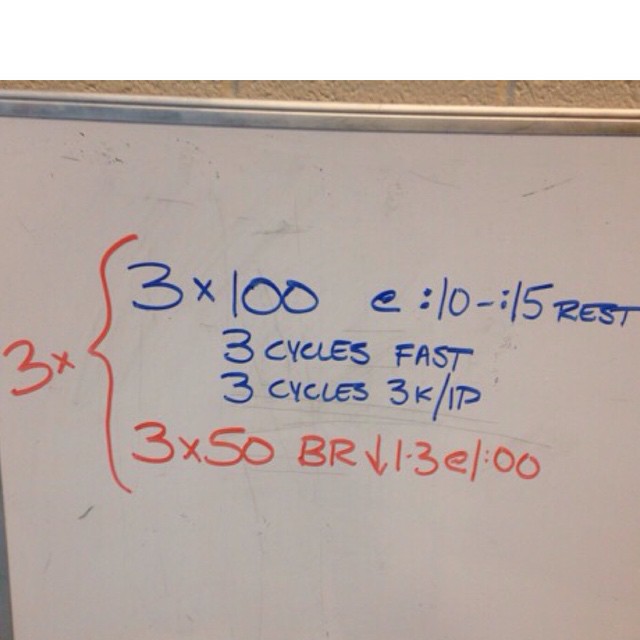 3x
3x100 @ :10-:15 REST
3 CYCLES FAST
3 CYCLES 3K/1P
3x50 BR ↓1-3 @ 1:00